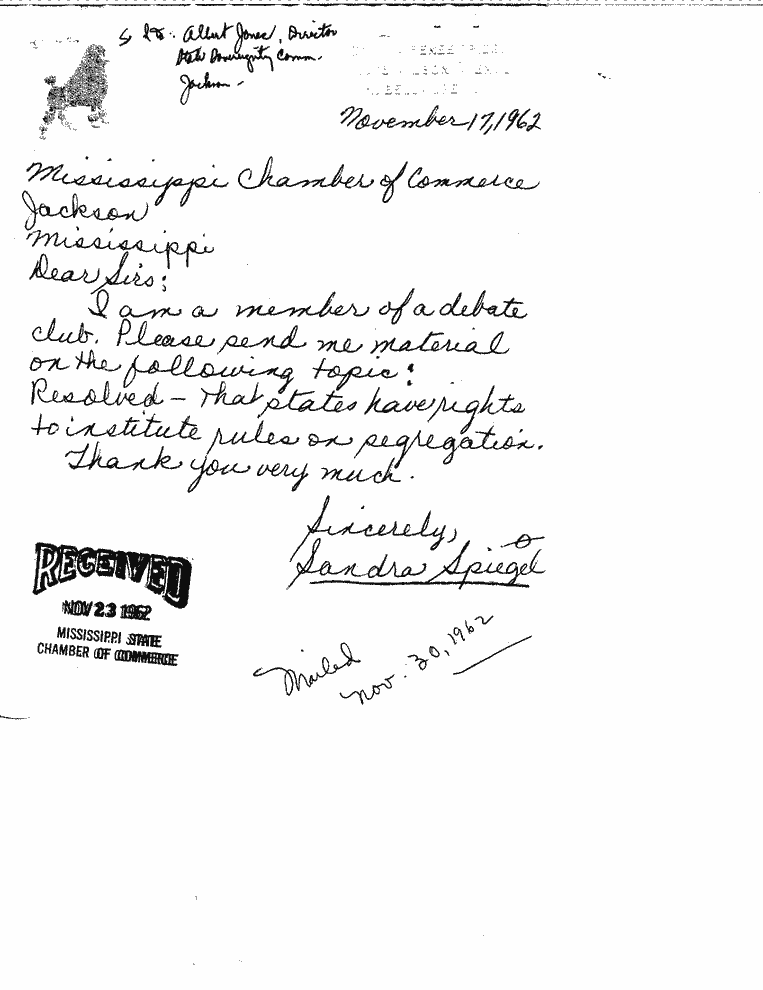 to: Albert Jones, Director
State Sovereignty Comm.
Jackson -
November 17, 1962
Mississippi Chamber of Commerce
Jackson
Mississippi
Dear Sirs:
I am a member of a debate
club. Please send me material
on the following topic:
Resolved - That states have rights
to institute rules on segregation.
Thank you very much.
Sincerely,
Sandra Spiegel
RECEIVED
NOV 23 1962
MISSISSIPPI STATE
CHAMBER OF COMMERCE
Mailed
Nov. 30, 1962